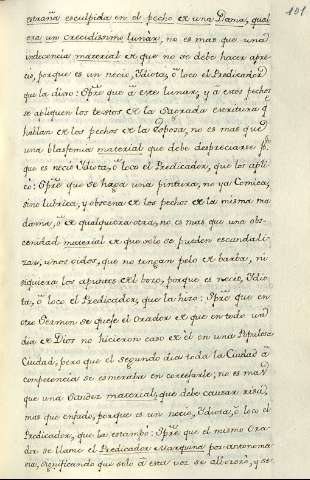 101
estraña esculpida en el pecho de una Dama, qual
era un crecidissimo lunàr, no es mas que una
indecencia material de que no se debe hacer apre-
cio, porque es un necio, Idiota, ò loco el Predicador
que la dixo: Ypse que à este lunar, y à estos pechos
se apliquen los textos de la Sagrada escritura q̃
hablan de los pechos de la Esposa, no es mas que
una blasfemia material que debe despreciarse p.
que es necio Idiota, ò loco el Predicador, que los apli-
cò: que se haga una pintura, no ya Comica,
sino lubrica, y obscena de los pechos de la misma ma
dama, ò de qualquiera otra, no es mas que una obs-
cenidad material de que solo se pueden escandali-
zar, unos oidos, que no tengan pelo de barba, ni
siquiera los apuntes del bozo, porque es necio, Idio
ta, ò loco el Predicador, que la hizo: que en
otro Sermon se queje el Orador de que en todo un
dia de Dios no hicieron caso de èl en una Populosa
Ciudad, pero que el segundo dia toda la Ciudad à
competencia se esmeraba en cortejarle; no es mas
que una Sandez material, que debe causar risa,
mas que enfado, porque es un necio, Idiota, ò loco el
Predicador, que la estampò: que el mismo Ora-
dor se llame el Predicador Marquina por antonoma
sia, significando que solo à esta voz se alborozò, y se